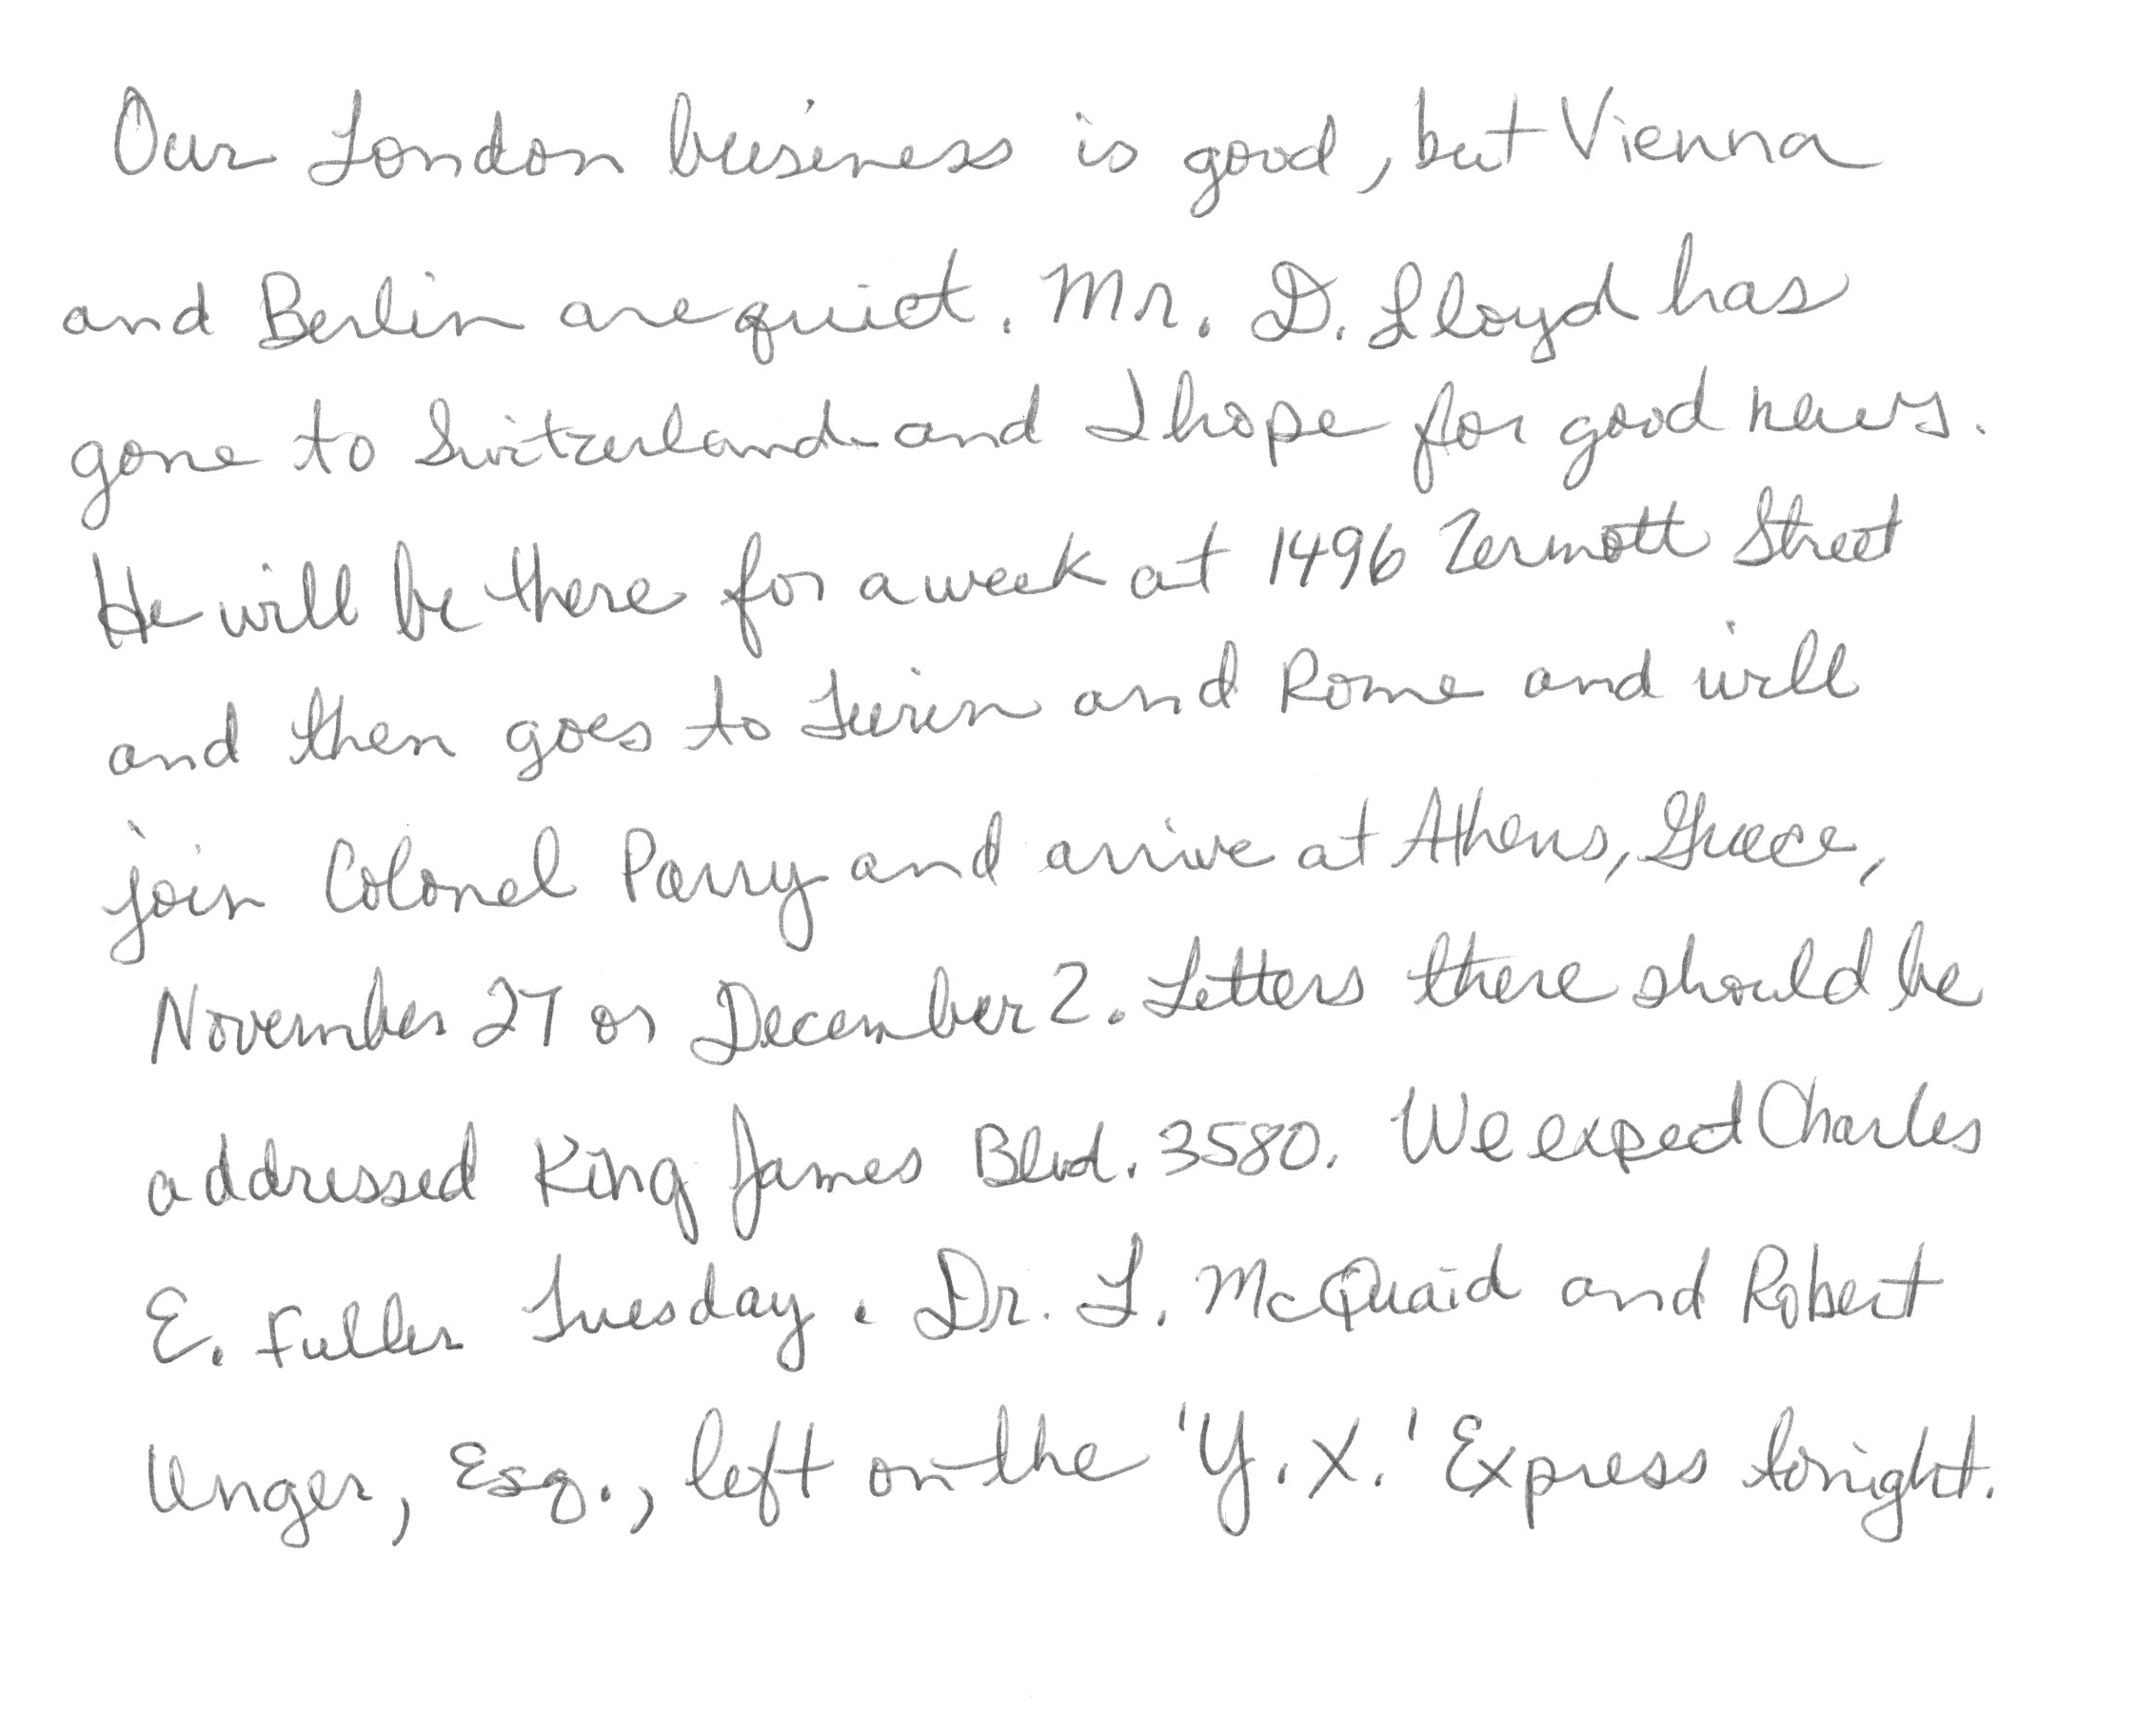 Our London business is good, but Vienna
and Berlin are quiet. Mr. D. Lloyd has
gone to Switzerland and I hope for good news.
He will be there for a week at 1496 Zermott Street
and then goes to Turin and Rome and will
join Colonel Parry and arrive at Athens, Greece,
November 27 or December 2. Letters there should be
addressed King James Blvd. 3580. We expect Charles
E. Fuller Tuesday. Dr. L. McQuaid and Robert
Unger, Esq., left on the 'Y.X.' Express tonight.